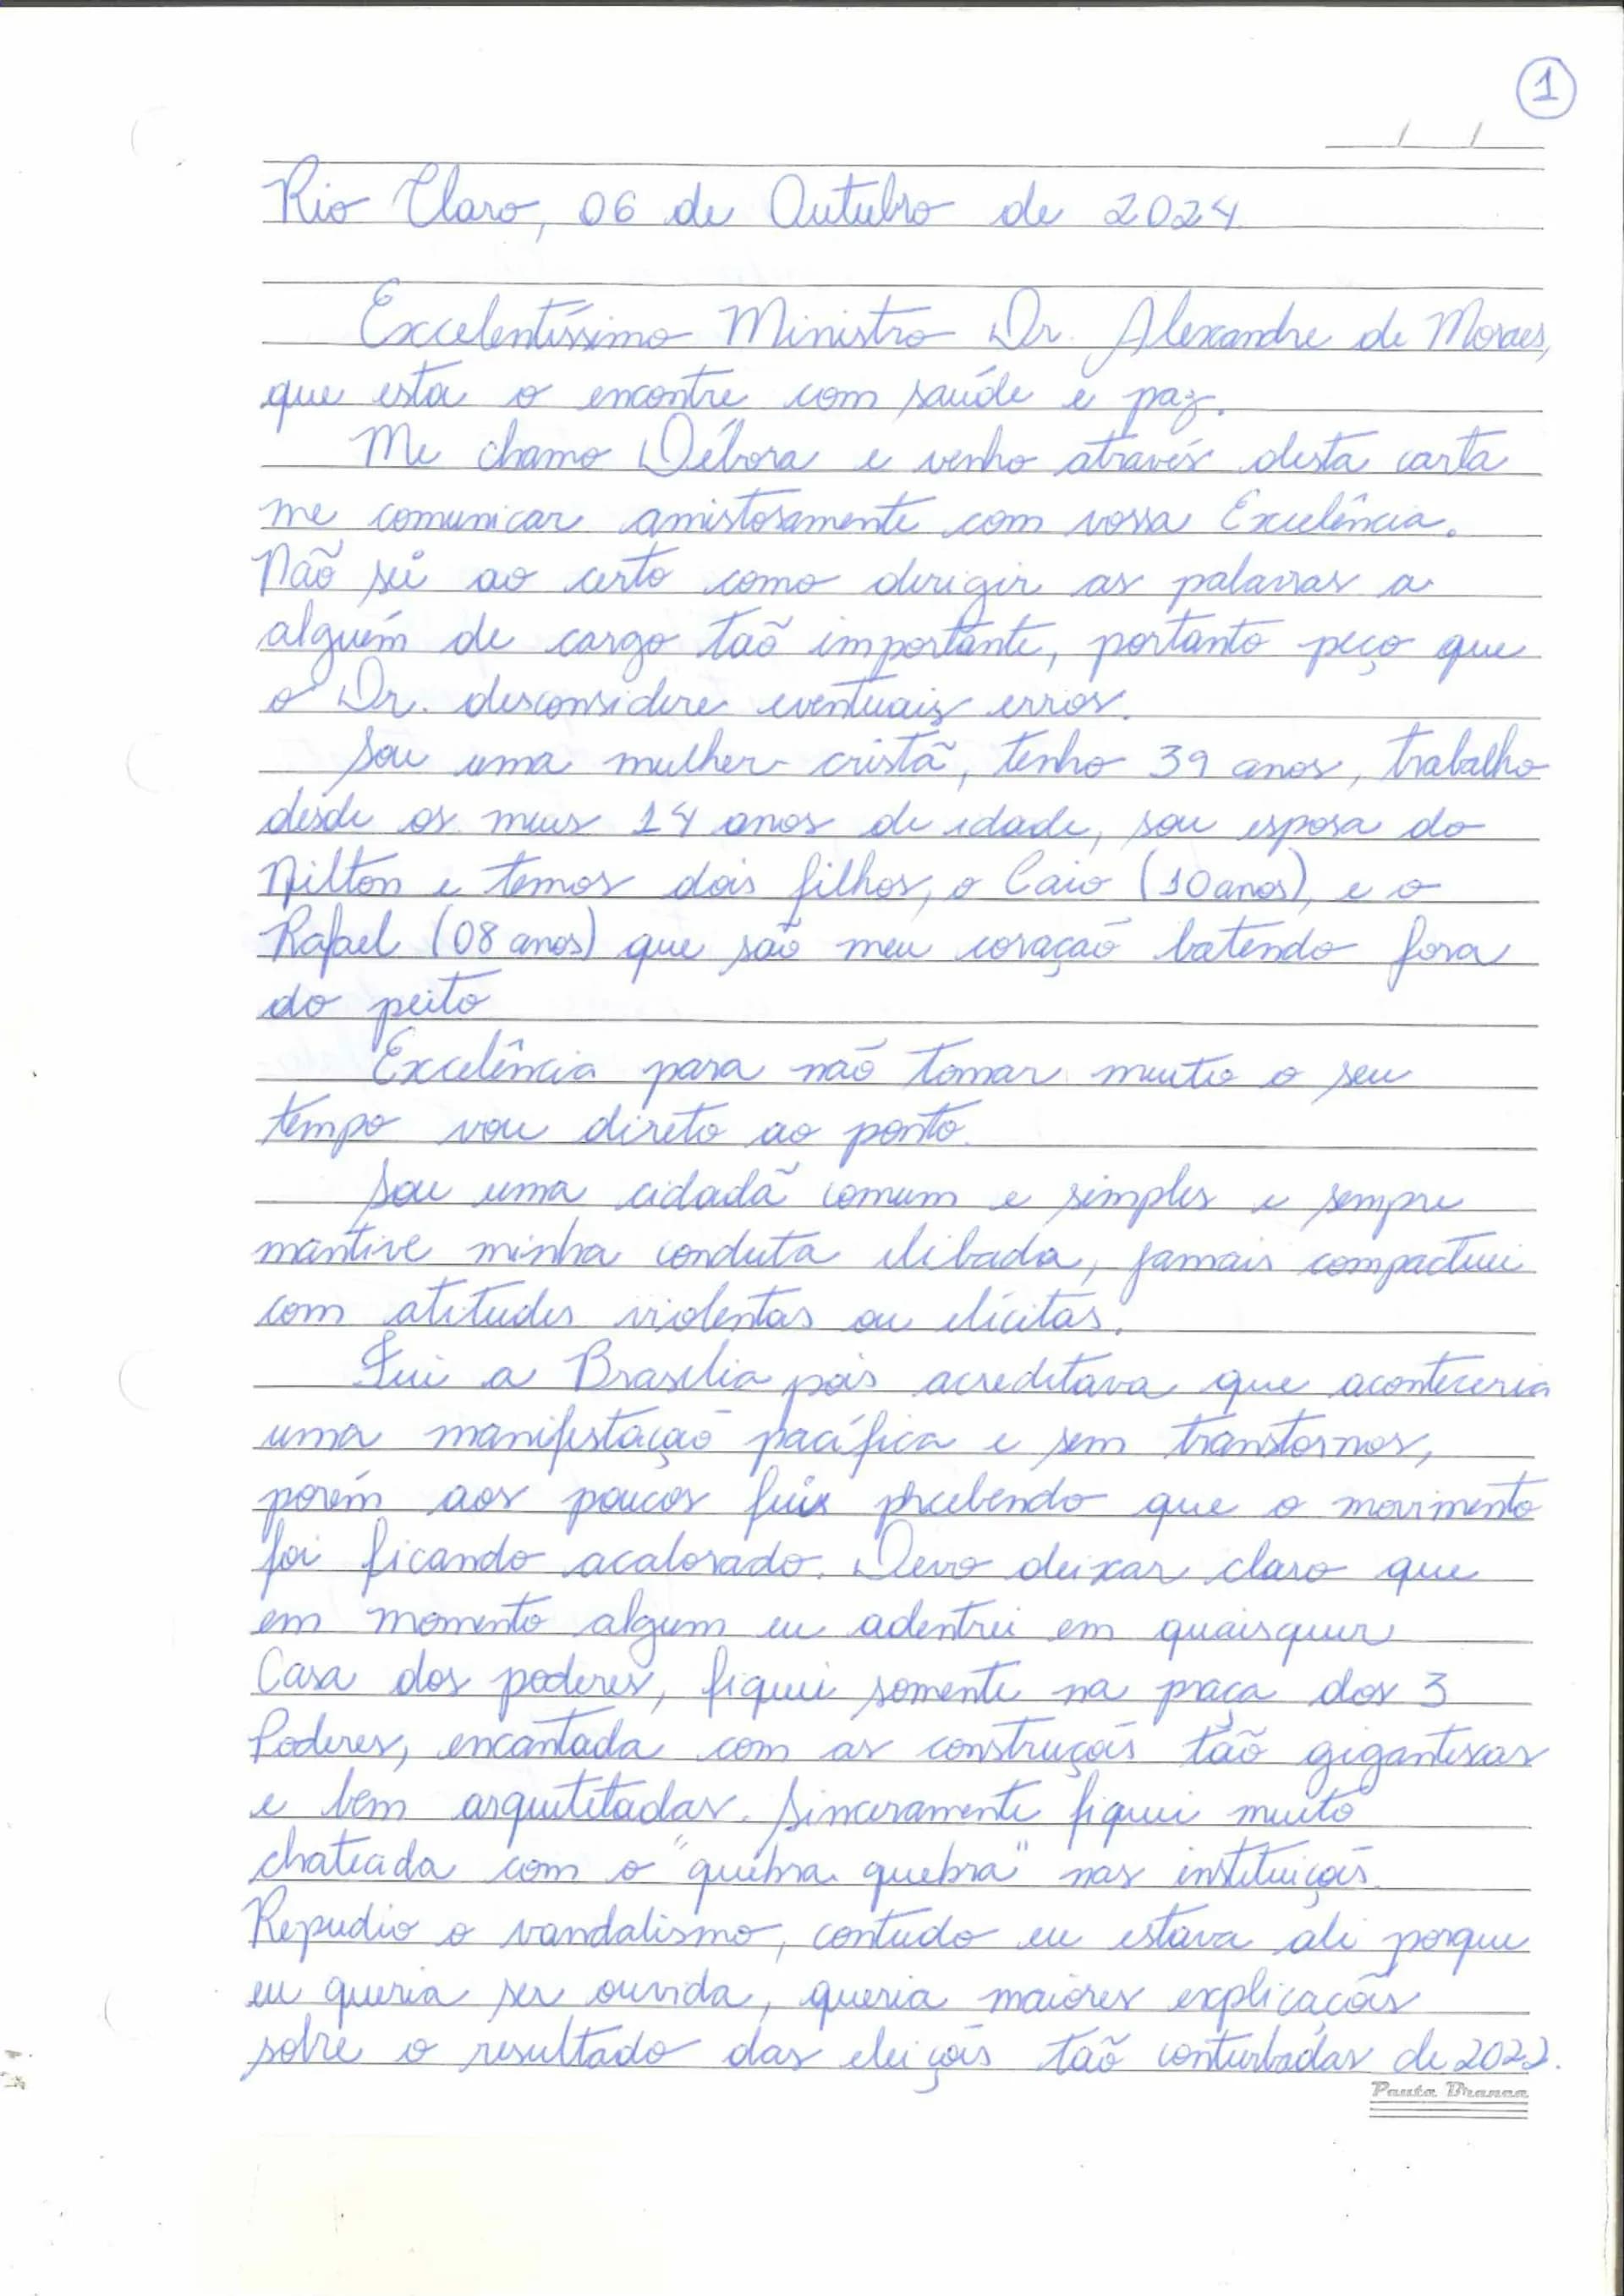 1
/ /
Rio Claro, 06 de Outubro de 2024
Excelentíssimo Ministro Dr. Alexandre de Moraes,
que esta o encontre com saúde e paz.
Me chamo Débora e venho através desta carta
me comunicar amistosamente com vossa Excelência.
Não sei ao certo como dirigir as palavras a
alguém de cargo tão importante, portanto peço que
o Dr. desconsidere eventuais erros.
Sou uma mulher cristã, tenho 39 anos, trabalho
desde os meus 14 anos de idade, sou esposa do
Nilton e temos dois filhos, o Caio (10 anos), e o
Rafael (08 anos) que são meu coração batendo fora
do peito
Excelência para não tomar muito o seu
tempo vou direto ao ponto.
Sou uma cidadã comum e simples e sempre
mantive minha conduta ilibada, jamais compactuei
com atitudes violentas ou ilícitas.
Fui a Brasília pois acreditava que aconteceria
uma manifestação pacífica e sem transtornos,
porém aos poucos fui percebendo que o movimento
foi ficando acalorado. Devo deixar claro que
em momento algum eu adentrei em quaisquer
Casa dos poderes, fiquei somente na praça dos 3
Poderes, encantada com as construções tão gigantescas
e bem arquitetadas. Sinceramente fiquei muito
chateada com o "quebra quebra" nas instituições.
Repudio o vandalismo, contudo eu estava ali porque
eu queria ser ouvida, queria maiores explicações
sobre o resultado das eleições tão conturbadas de 2022.
Pauta Branca